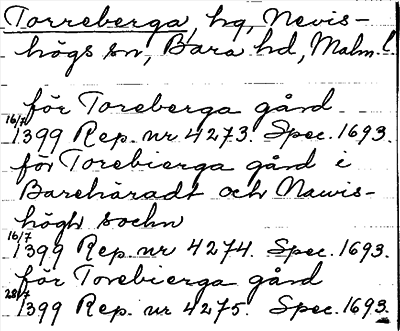 Torreberga, hg, Nevis-
högs sn, Bara hd, Malm. l.
för Toreberga gård
16/7 1399 Rep. nr 4273. Spec. 1693.
för Torebierga gård i
Barehäradt och Nawis-
högh sochn
16/7 1399 Rep. nr 4274. Spec. 1693.
för Torebierga gård
28/7 1399 Rep. nr 4275. Spec. 1693.